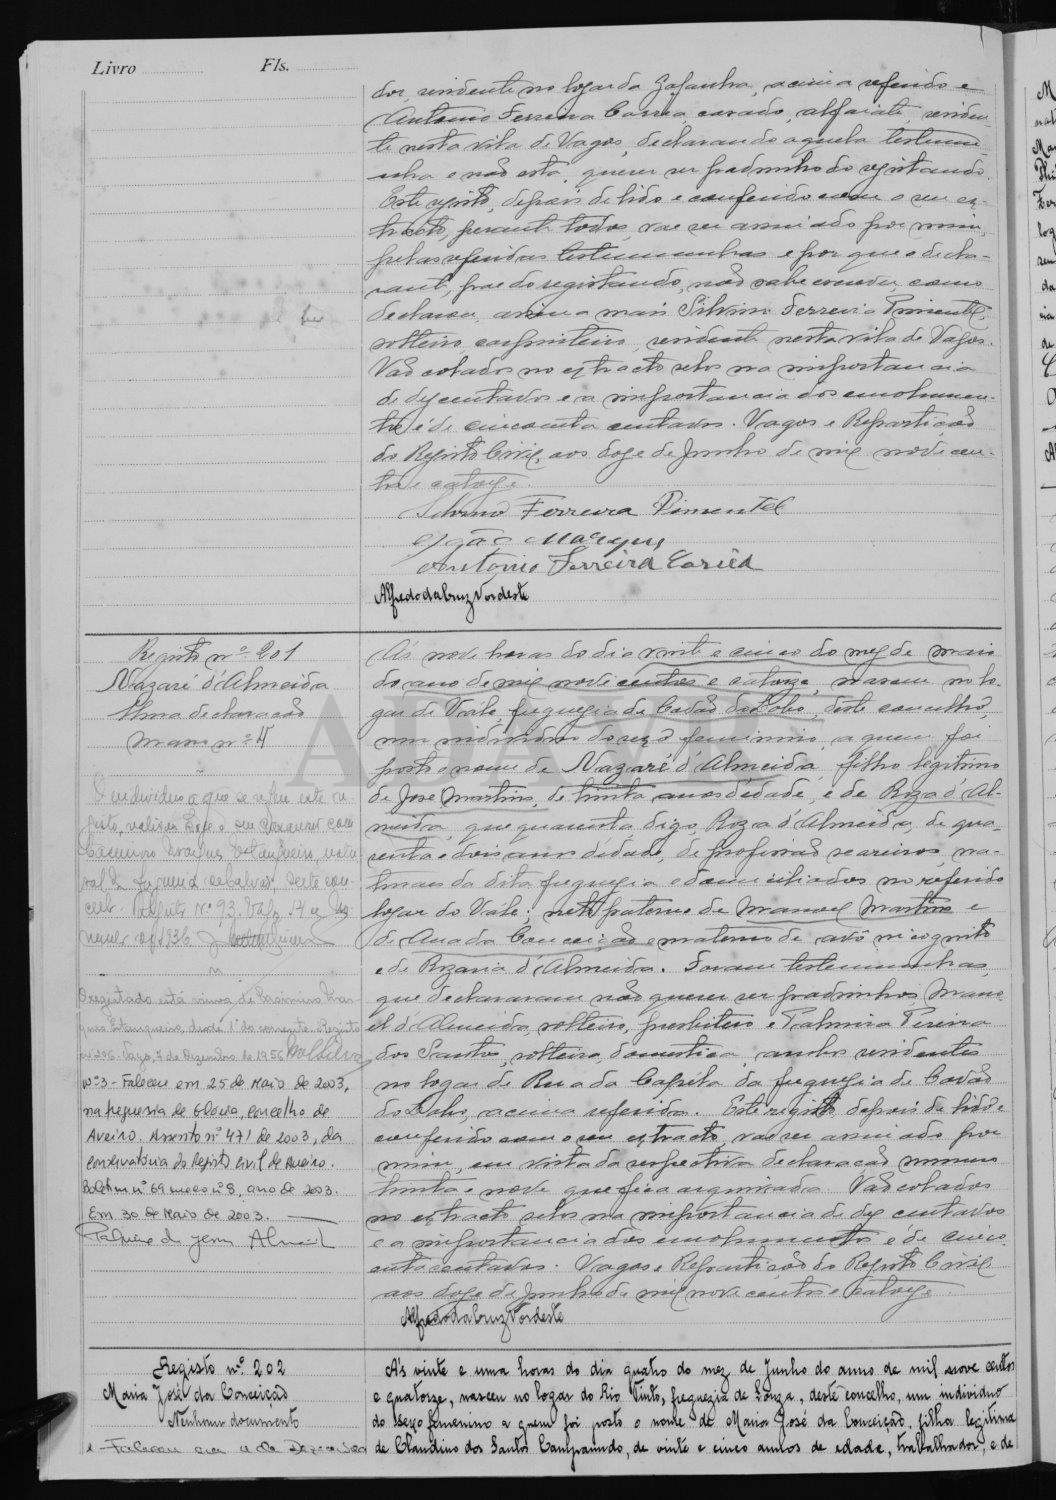 Livro Fls.
dor, residente no logar da Gafanha, acima referido e
Antonio Ferreira Correa casado, alfaiate, residen-
te nesta vila de Vagos, declarando aquela testemu-
nha e não esta, querer ser padrinho do registando.
Este registo, depois de lido e conferido com o seu ex-
tracto, perante todos, vae ser assinado por mim,
pelas referidas testemunhas e por que o decla-
rante, pae do registando, não sabe escrever como
declarou, assina mais Silvino Ferreira Pimentel,
solteiro, carpinteiro, residente nesta vila de Vagos.
Vão colados no extracto selos na importancia
de dez centavos e a importancia dos emolumen-
tos é de cincoenta centavos. Vagos e Repartição
do Registo Civil, aos doze de Junho de mil novecen-
tos e catorze.
Silvino Ferreira Pimentel
João Marques
Antonio Ferreira Corrêa
Alfredo da Cruz Nordeste
Registo nº 201
Nazaré d'Almeida
Uma declaração
Maço nº 4
O individuo a que se refere este re-
gisto, realisou hoje o seu casamento com
Casimiro Marques Estanqueiro, natu-
ral da freguesia de Calvão, deste con-
celho. Registo Nº 93. Vagos, 14 de
de 1936.
O registado está viuva de Casimiro Mar-
ques Estanqueiro, desde 1 do corrente. Registo
nº 206. Vagos, 7 de Dezembro de 1956
Nº 3 - Faleceu em 25 de Maio de 2003,
na freguesia de Glória, concelho de
Aveiro. Assento nº 471 de 2003, da
Conservatória do Registo Civil de Aveiro.
Boletim nº 69 maço nº 8, ano de 2003.
Em 30 de Maio de 2003.
Ás nove horas do dia vinte e cinco do mez de maio
do ano de mil novecentos e catorze, nasceu no lo-
gar de Vale, freguezia de Covão do Lobo, deste concelho,
um individuo do sexo feminino, a quem foi
posto o nome de Nazaré d'Almeida, filho legitimo
de José Martins, de trinta anos d'edade, e de Roza d'Al-
meida, que quarenta, digo, Roza d'Almeida, de qua-
renta e dois anos d'edade, de profissão seareiros, na-
turaes da dita freguezia e domiciliados no referido
logar do Vale; neto paterno de Manoel Martins e
de Ana da Conceição e materno de avô incognito
e de Rozaria d'Almeida. Foram testemunhas,
que declararam não querer ser padrinhos, Mano-
el d'Almeida, solteiro, presbitero e Palmira Pereira
dos Santos, solteira, domestica, ambos residentes
no logar de Rua da Capela, da freguezia de Covão
do Lobo, acima referida. Este registo depois de lido e
conferido com o seu extracto, vae ser assinado por
mim, em vista da respectiva declaração numero
trinta e nove que fica arquivada. Vão colados
no extracto selos na importancia de dez centavos
e a importancia dos emolumentos é de cinco-
enta centavos. Vagos e Repartição do Registo Civil,
aos doze de Junho de mil novecentos e catorze.
Alfredo da Cruz Nordeste
Registo nº 202
Maria José da Conceição
Nenhum documento
Ás vinte e uma horas do dia quatro do mez de Junho do anno de mil nove centos
e quatorze, nasceu no logar do Rio Tinto, freguezia de Sôuza, deste concelho, um individuo
do sexo femenino a quem foi posto o nome de Maria José da Conceição, filha legitima
de Claudino dos Santos Campaundo, de vinte e cinco annos de edade, trabalhador, e de